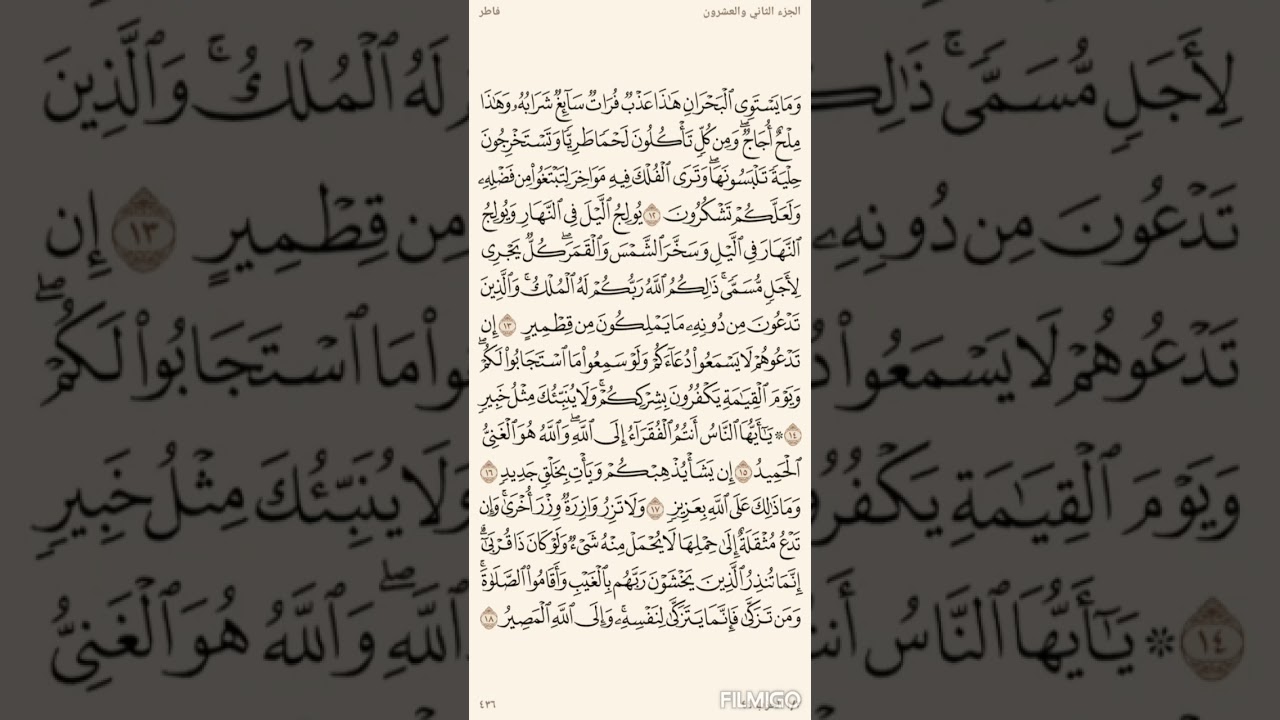 الجزء الثاني والعشرون
فاطر
وَمَا يَسْتَوِي ٱلْبَحْرَانِ هَٰذَا عَذْبٌ فُرَاتٌ سَآئِغٌ شَرَابُهُۥ وَهَٰذَا
مِلْحٌ أُجَاجٌ ۖ وَمِن كُلٍّ تَأْكُلُونَ لَحْمًا طَرِيًّا وَتَسْتَخْرِجُونَ
حِلْيَةً تَلْبَسُونَهَا ۖ وَتَرَى ٱلْفُلْكَ فِيهِ مَوَاخِرَ لِتَبْتَغُوا۟ مِن فَضْلِهِۦ
وَلَعَلَّكُمْ تَشْكُرُونَ ١٢ يُولِجُ ٱلَّيْلَ فِي ٱلنَّهَارِ وَيُولِجُ
ٱلنَّهَارَ فِي ٱلَّيْلِ وَسَخَّرَ ٱلشَّمْسَ وَٱلْقَمَرَ ۖ كُلٌّ يَجْرِي
لِأَجَلٍ مُّسَمًّى ۚ ذَٰلِكُمُ ٱللَّهُ رَبُّكُمْ لَهُ ٱلْمُلْكُ ۚ وَٱلَّذِينَ
تَدْعُونَ مِن دُونِهِۦ مَا يَمْلِكُونَ مِن قِطْمِيرٍ ١٣ إِن
تَدْعُوهُمْ لَا يَسْمَعُوا۟ دُعَآءَكُمْ وَلَوْ سَمِعُوا۟ مَا ٱسْتَجَابُوا۟ لَكُمْ ۖ
وَيَوْمَ ٱلْقِيَٰمَةِ يَكْفُرُونَ بِشِرْكِكُمْ ۚ وَلَا يُنَبِّئُكَ مِثْلُ خَبِيرٍ
١٤ ۞ يَٰٓأَيُّهَا ٱلنَّاسُ أَنتُمُ ٱلْفُقَرَآءُ إِلَى ٱللَّهِ ۖ وَٱللَّهُ هُوَ ٱلْغَنِيُّ
ٱلْحَمِيدُ ١٥ إِن يَشَأْ يُذْهِبْكُمْ وَيَأْتِ بِخَلْقٍ جَدِيدٍ ١٦
وَمَا ذَٰلِكَ عَلَى ٱللَّهِ بِعَزِيزٍ ١٧ وَلَا تَزِرُ وَازِرَةٌ وِزْرَ أُخْرَىٰ ۚ وَإِن
تَدْعُ مُثْقَلَةٌ إِلَىٰ حِمْلِهَا لَا يُحْمَلْ مِنْهُ شَيْءٌ وَلَوْ كَانَ ذَا قُرْبَىٰٓ ۗ
إِنَّمَا تُنذِرُ ٱلَّذِينَ يَخْشَوْنَ رَبَّهُم بِٱلْغَيْبِ وَأَقَامُوا۟ ٱلصَّلَوٰةَ ۚ
وَمَن تَزَكَّىٰ فَإِنَّمَا يَتَزَكَّىٰ لِنَفْسِهِۦ ۚ وَإِلَى ٱللَّهِ ٱلْمَصِيرُ ١٨
FILMIGO
٤٣٦